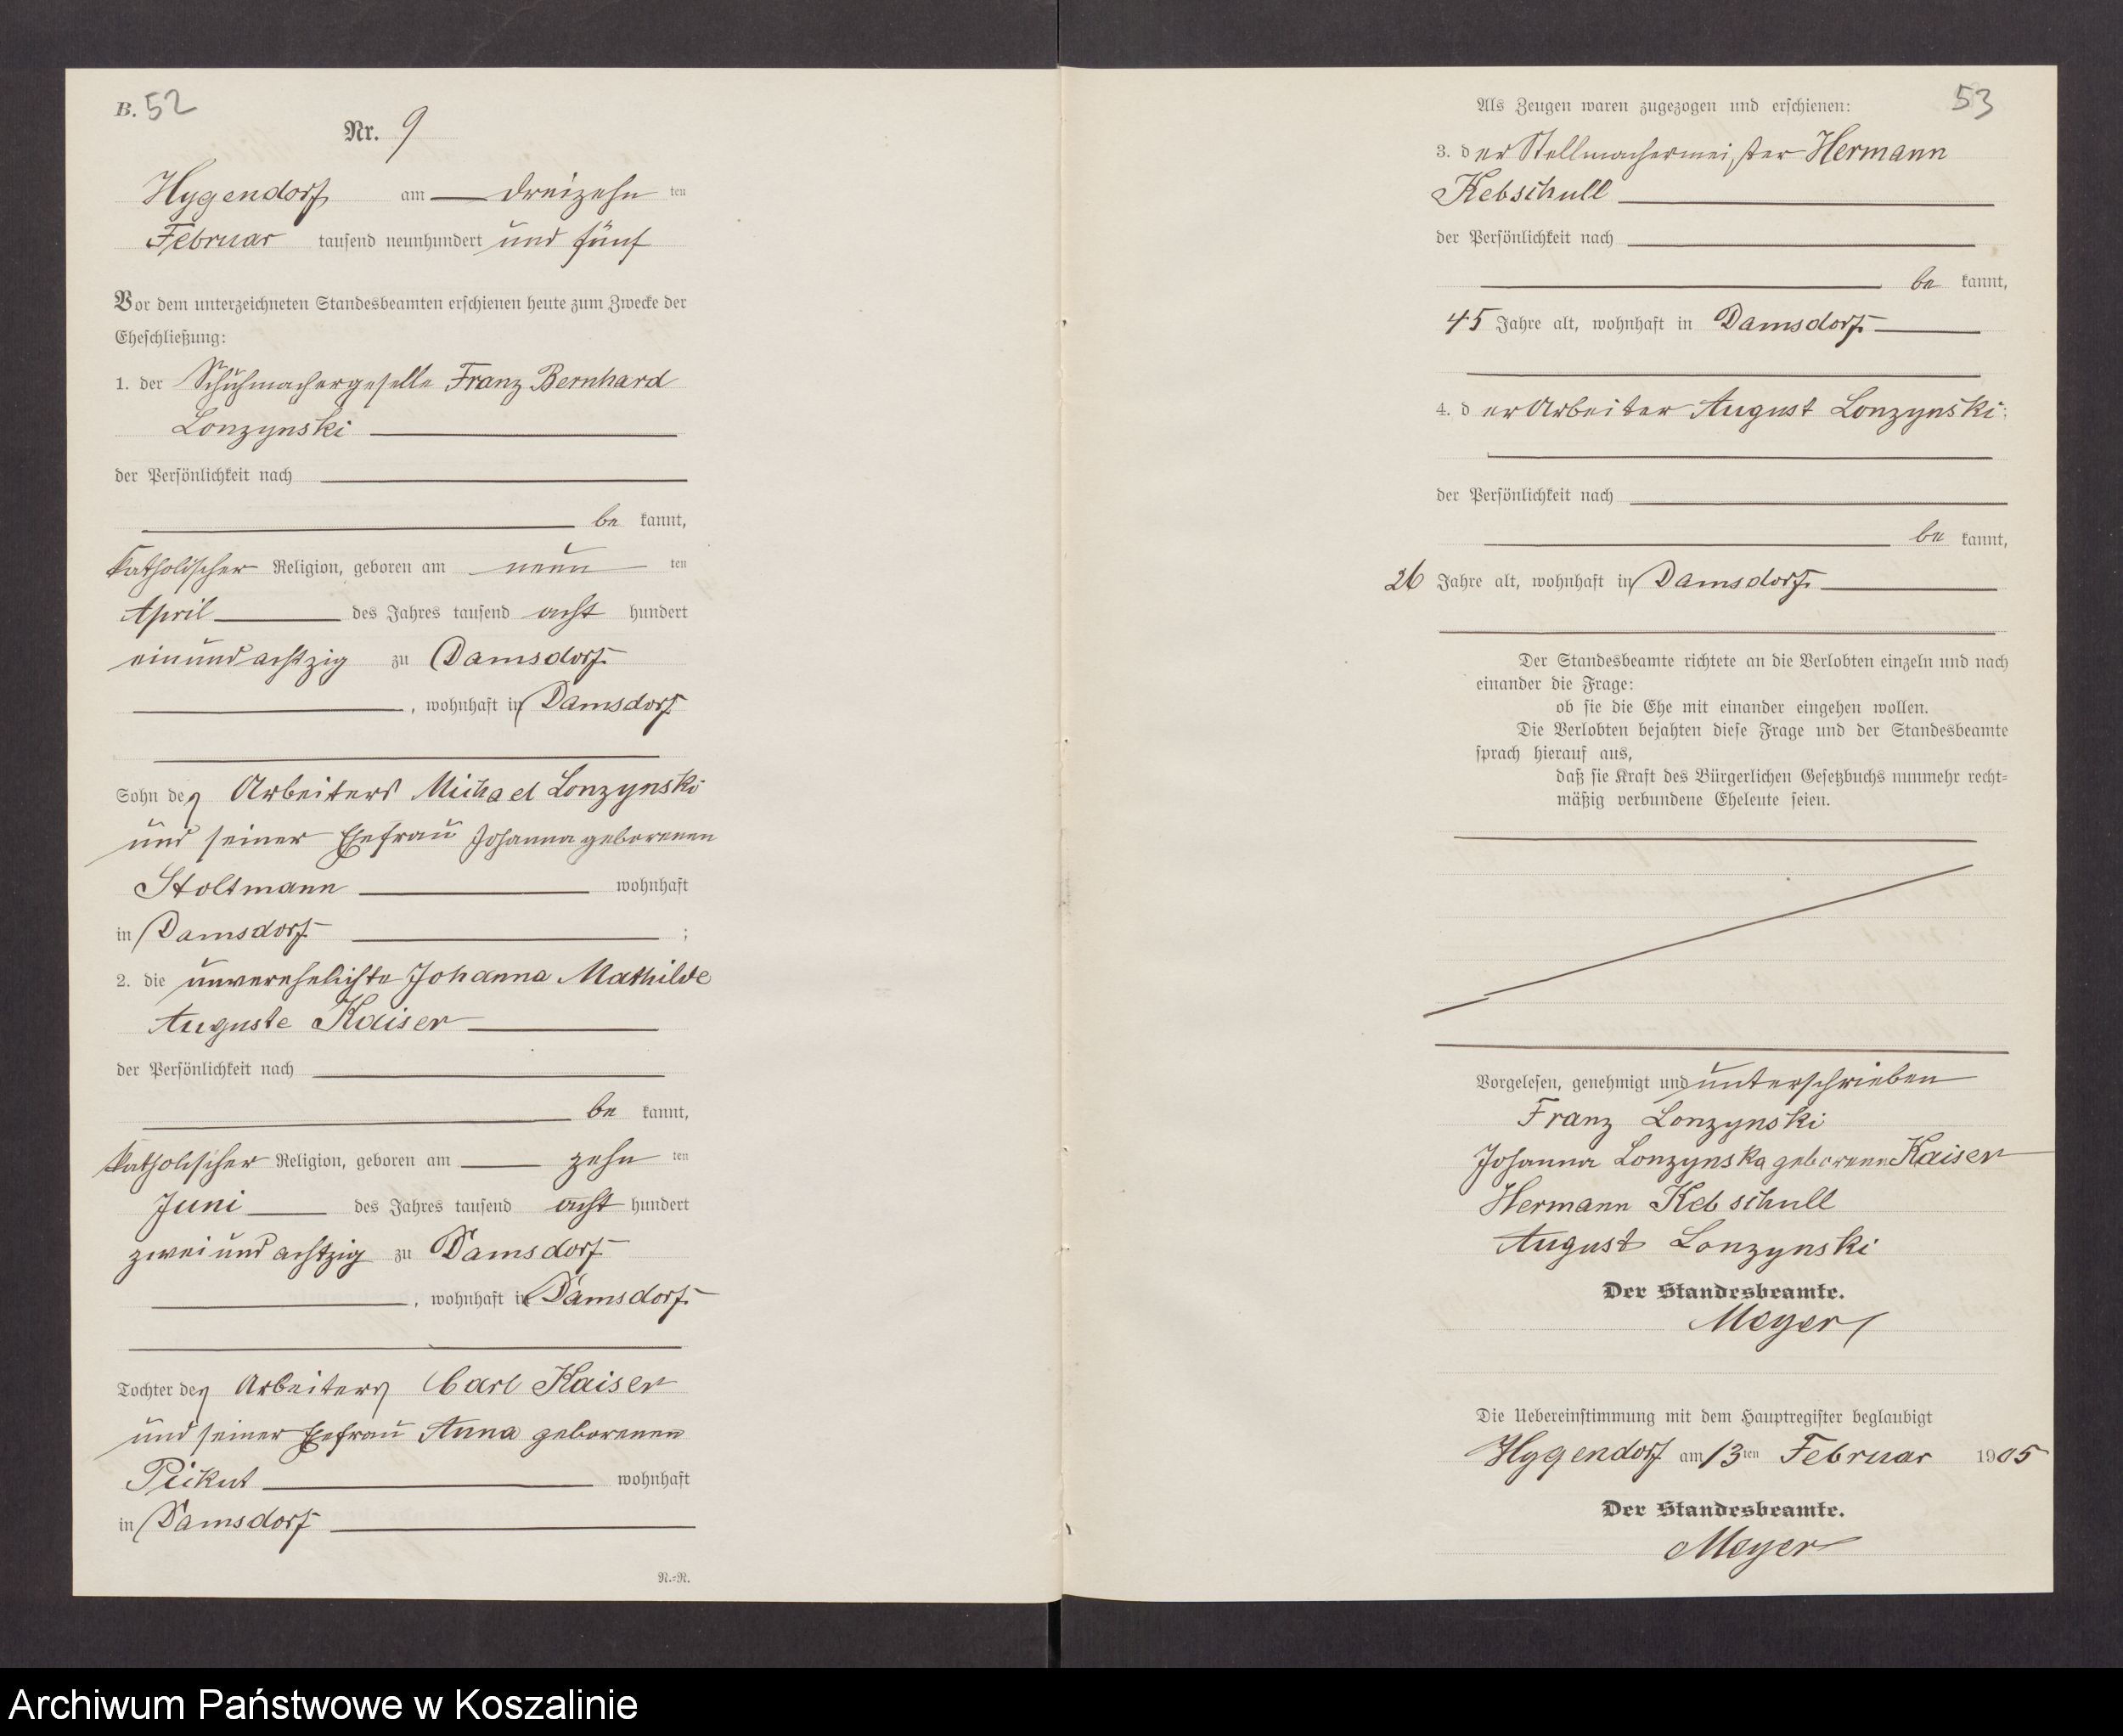 B. 52
Nr. 9
Hygendorf am dreizehn ten
Februar tausend neunhundert und fünf
Vor dem unterzeichneten Standesbeamten erschienen heute zum Zwecke der
Eheschließung:
1. der Schuhmachergeselle Franz Bernhard
Lonzynski
der Persönlichkeit nach
be kannt,
katholischer Religion, geboren am neun ten
April des Jahres tausend acht hundert
einundachtzig zu Damsdorf
, wohnhaft in Damsdorf
Sohn des Arbeiters Michael Lonzynski
und seiner Ehefrau Johanna geborenen
Stoltmann wohnhaft
in Damsdorf ;
2. die unverehelichte Johanna Mathilde
Auguste Kaiser
der Persönlichkeit nach
be kannt,
katholischer Religion, geboren am zehn ten
Juni des Jahres tausend acht hundert
zweiundachtzig zu Damsdorf
, wohnhaft in Damsdorf
Tochter des Arbeiters Carl Kaiser
und seiner Ehefrau Anna geborenen
Piikut wohnhaft
in Damsdorf
N.=N.
53
Als Zeugen waren zugezogen und erschienen:
3. der Stellmachermeister Hermann
Kebschull
der Persönlichkeit nach
be kannt,
45 Jahre alt, wohnhaft in Damsdorf
4. der Arbeiter August Lonzynski;
der Persönlichkeit nach
be kannt,
26 Jahre alt, wohnhaft in Damsdorf
Der Standesbeamte richtete an die Verlobten einzeln und nach
einander die Frage:
ob sie die Ehe mit einander eingehen wollen.
Die Verlobten bejahten diese Frage und der Standesbeamte
sprach hierauf aus,
daß sie Kraft des Bürgerlichen Gesetzbuchs nunmehr recht=
mäßig verbundene Eheleute seien.
Vorgelesen, genehmigt und unterschrieben
Franz Lonzynski
Johanna Lonzynska geborene Kaiser
Hermann Kebschull
August Lonzynski
Der Standesbeamte.
Meyer
Die Uebereinstimmung mit dem Hauptregister beglaubigt
Hygendorf am 13 ten Februar 1905
Der Standesbeamte.
Meyer
Archiwum Państwowe w Koszalinie